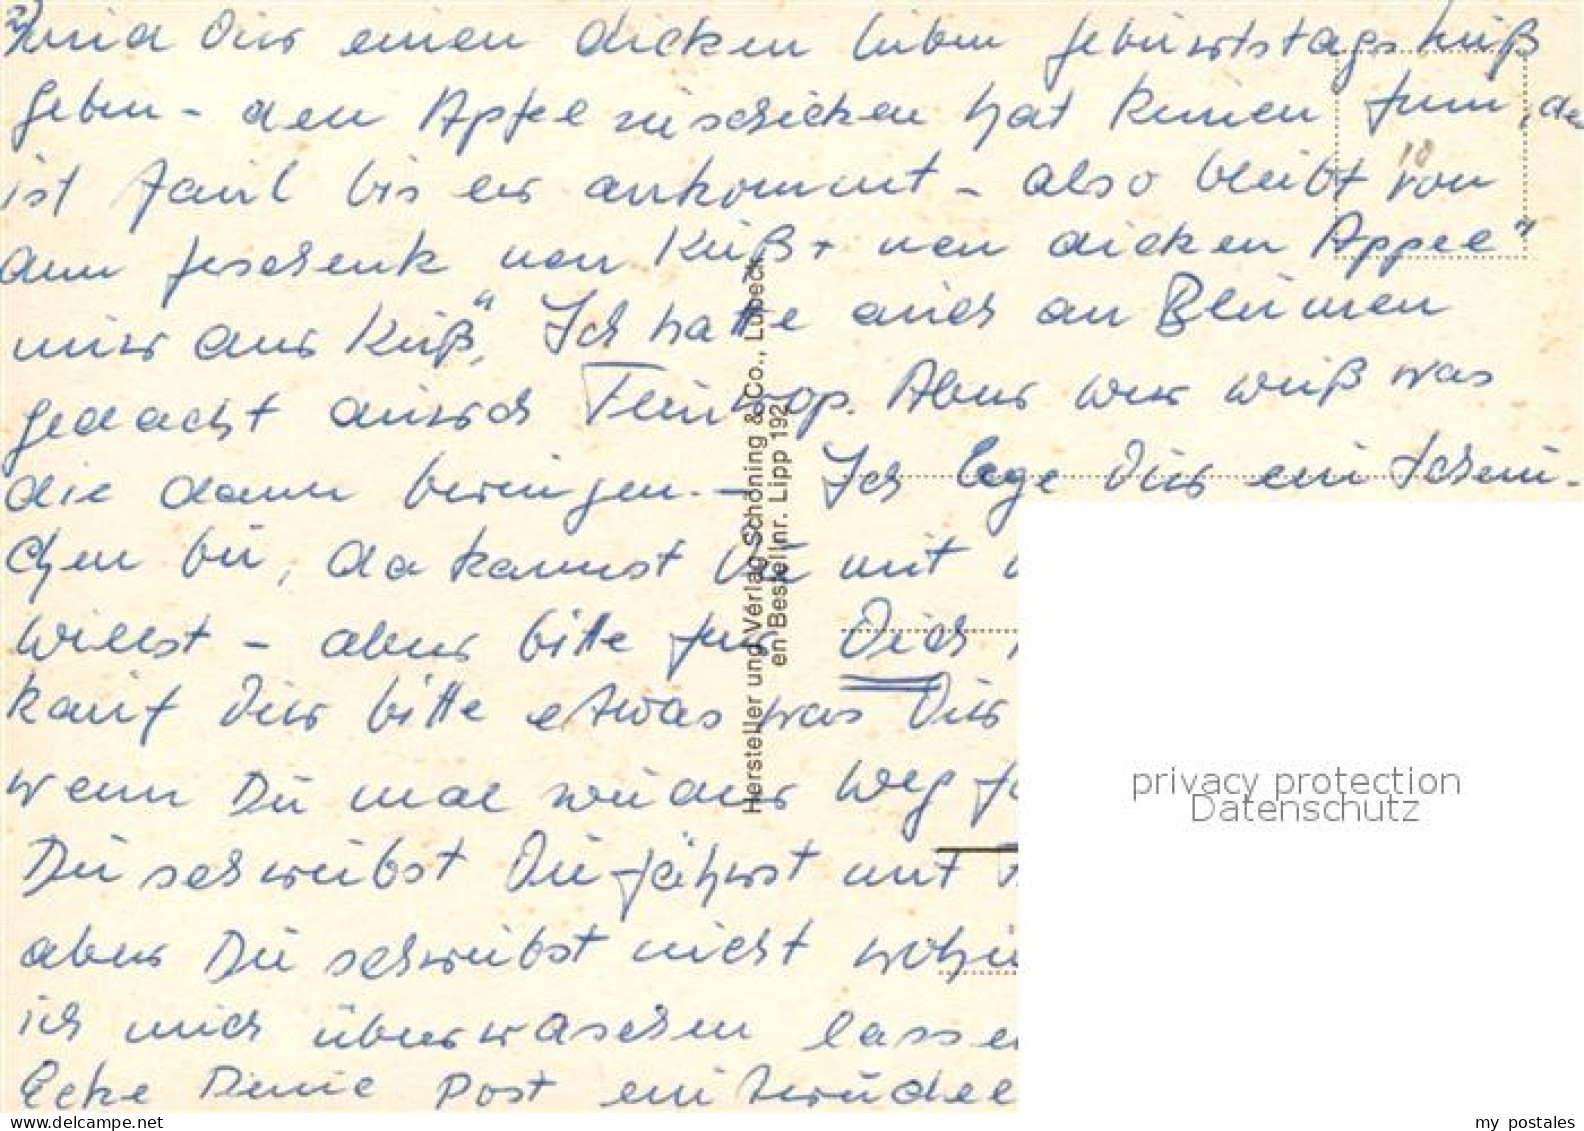 und Dir einen dicken lieben Geburtstagskuß
geben - den Apfel zu schicken hat keinen Sinn, der
ist faul bis er ankommt - also bleibt von
dem Geschenk von Kuß + von dicken Appel"
nur ein Kuß". Ich hatte auch an Blumen
gedacht durch Fleurop. Aber wer weiß was
die dann bringen. - Ich lege Dir ein Schein-
chen bei, da kannst Du mit
willst - aber bitte für Dich
kauf Dir bitte etwas was Dir
wenn Du mal wieder weg
Du schreibst Du fährst mit
aber Du schreibst nicht wohin
ich mich überraschen lassen
Ecke Deine Post
Hersteller und Verlag Schöning & Co., Lübeck
en Bestellnr. Lipp 192
privacy protection
Datenschutz
www.delcampe.net
my_postales